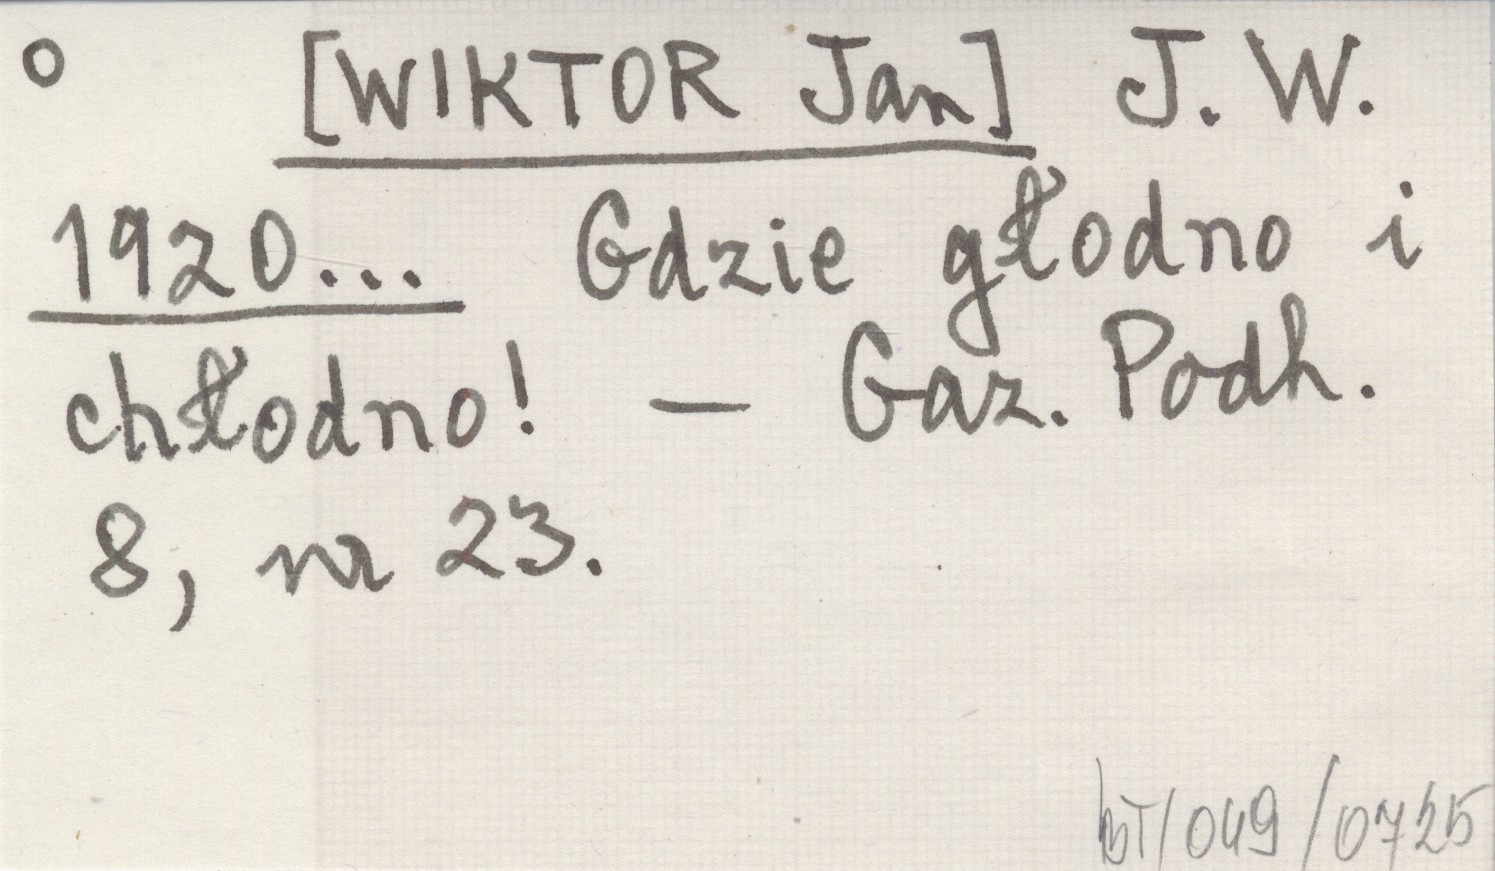 o [WIKTOR Jan] J. W.
1920... Gdzie głodno i
chłodno! — Gaz. Podh.
8, nr 23.
BT/049/0725